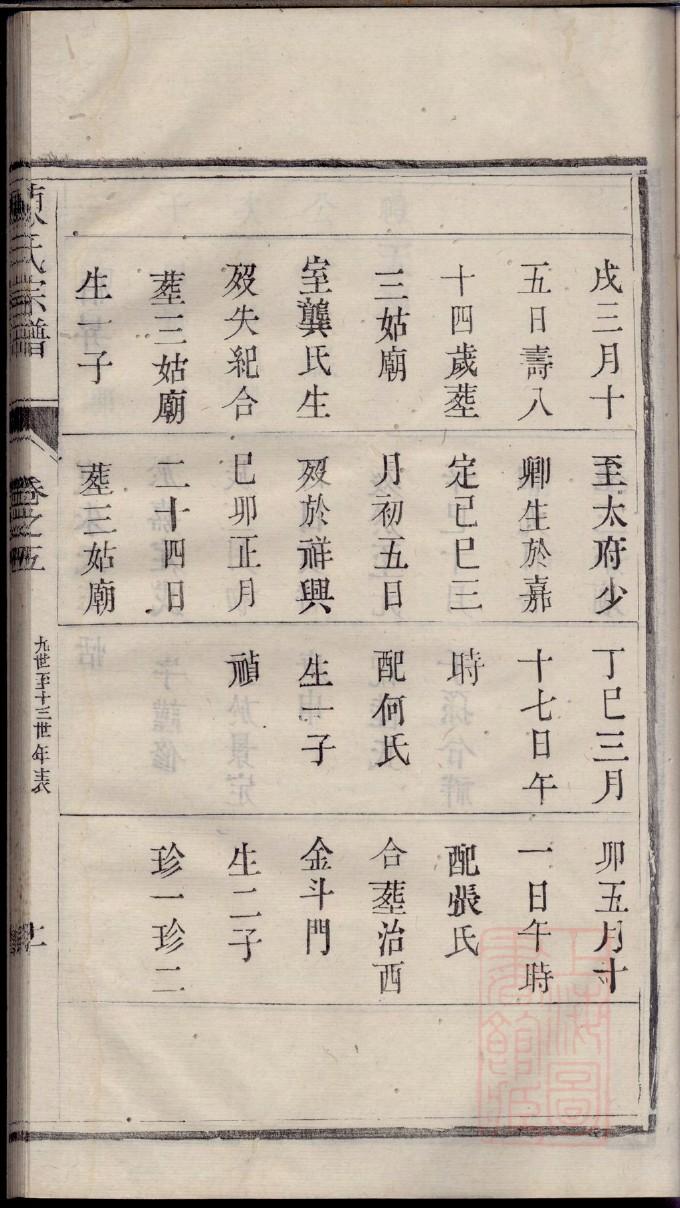 戌三月十
五日壽八
十四歲塟
三姑廟
室龔氏生
歿失紀合
塟三姑廟
生一子
至太府少
卿生於嘉
定己巳三
月初五日
歿於祥興
己卯正月
二十四日
塟三姑廟
丁巳三月
十七日午
時
配何氏
生一子
禎
卯五月十
一日午時
配張氏
合塟治西
金斗門
生二子
珍一珍二
氏宗譜
卷之五
九世至十三世年表